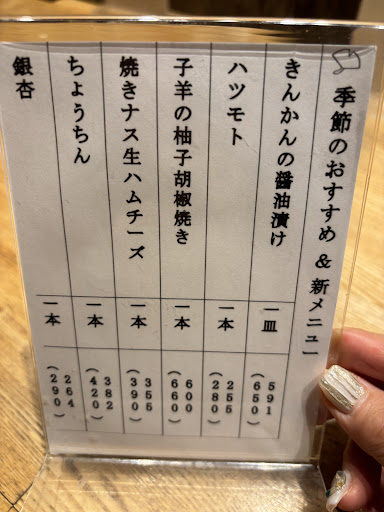 季節のおすすめ & 新メニュー
きんかんの醤油漬け 一皿 591(650)
ハツモト 一本 255(280)
子羊の柚子胡椒焼き 一本 600(660)
焼きナス生ハムチーズ 一本 355(390)
ちょうちん 一本 382(420)
銀杏 一本 264(290)